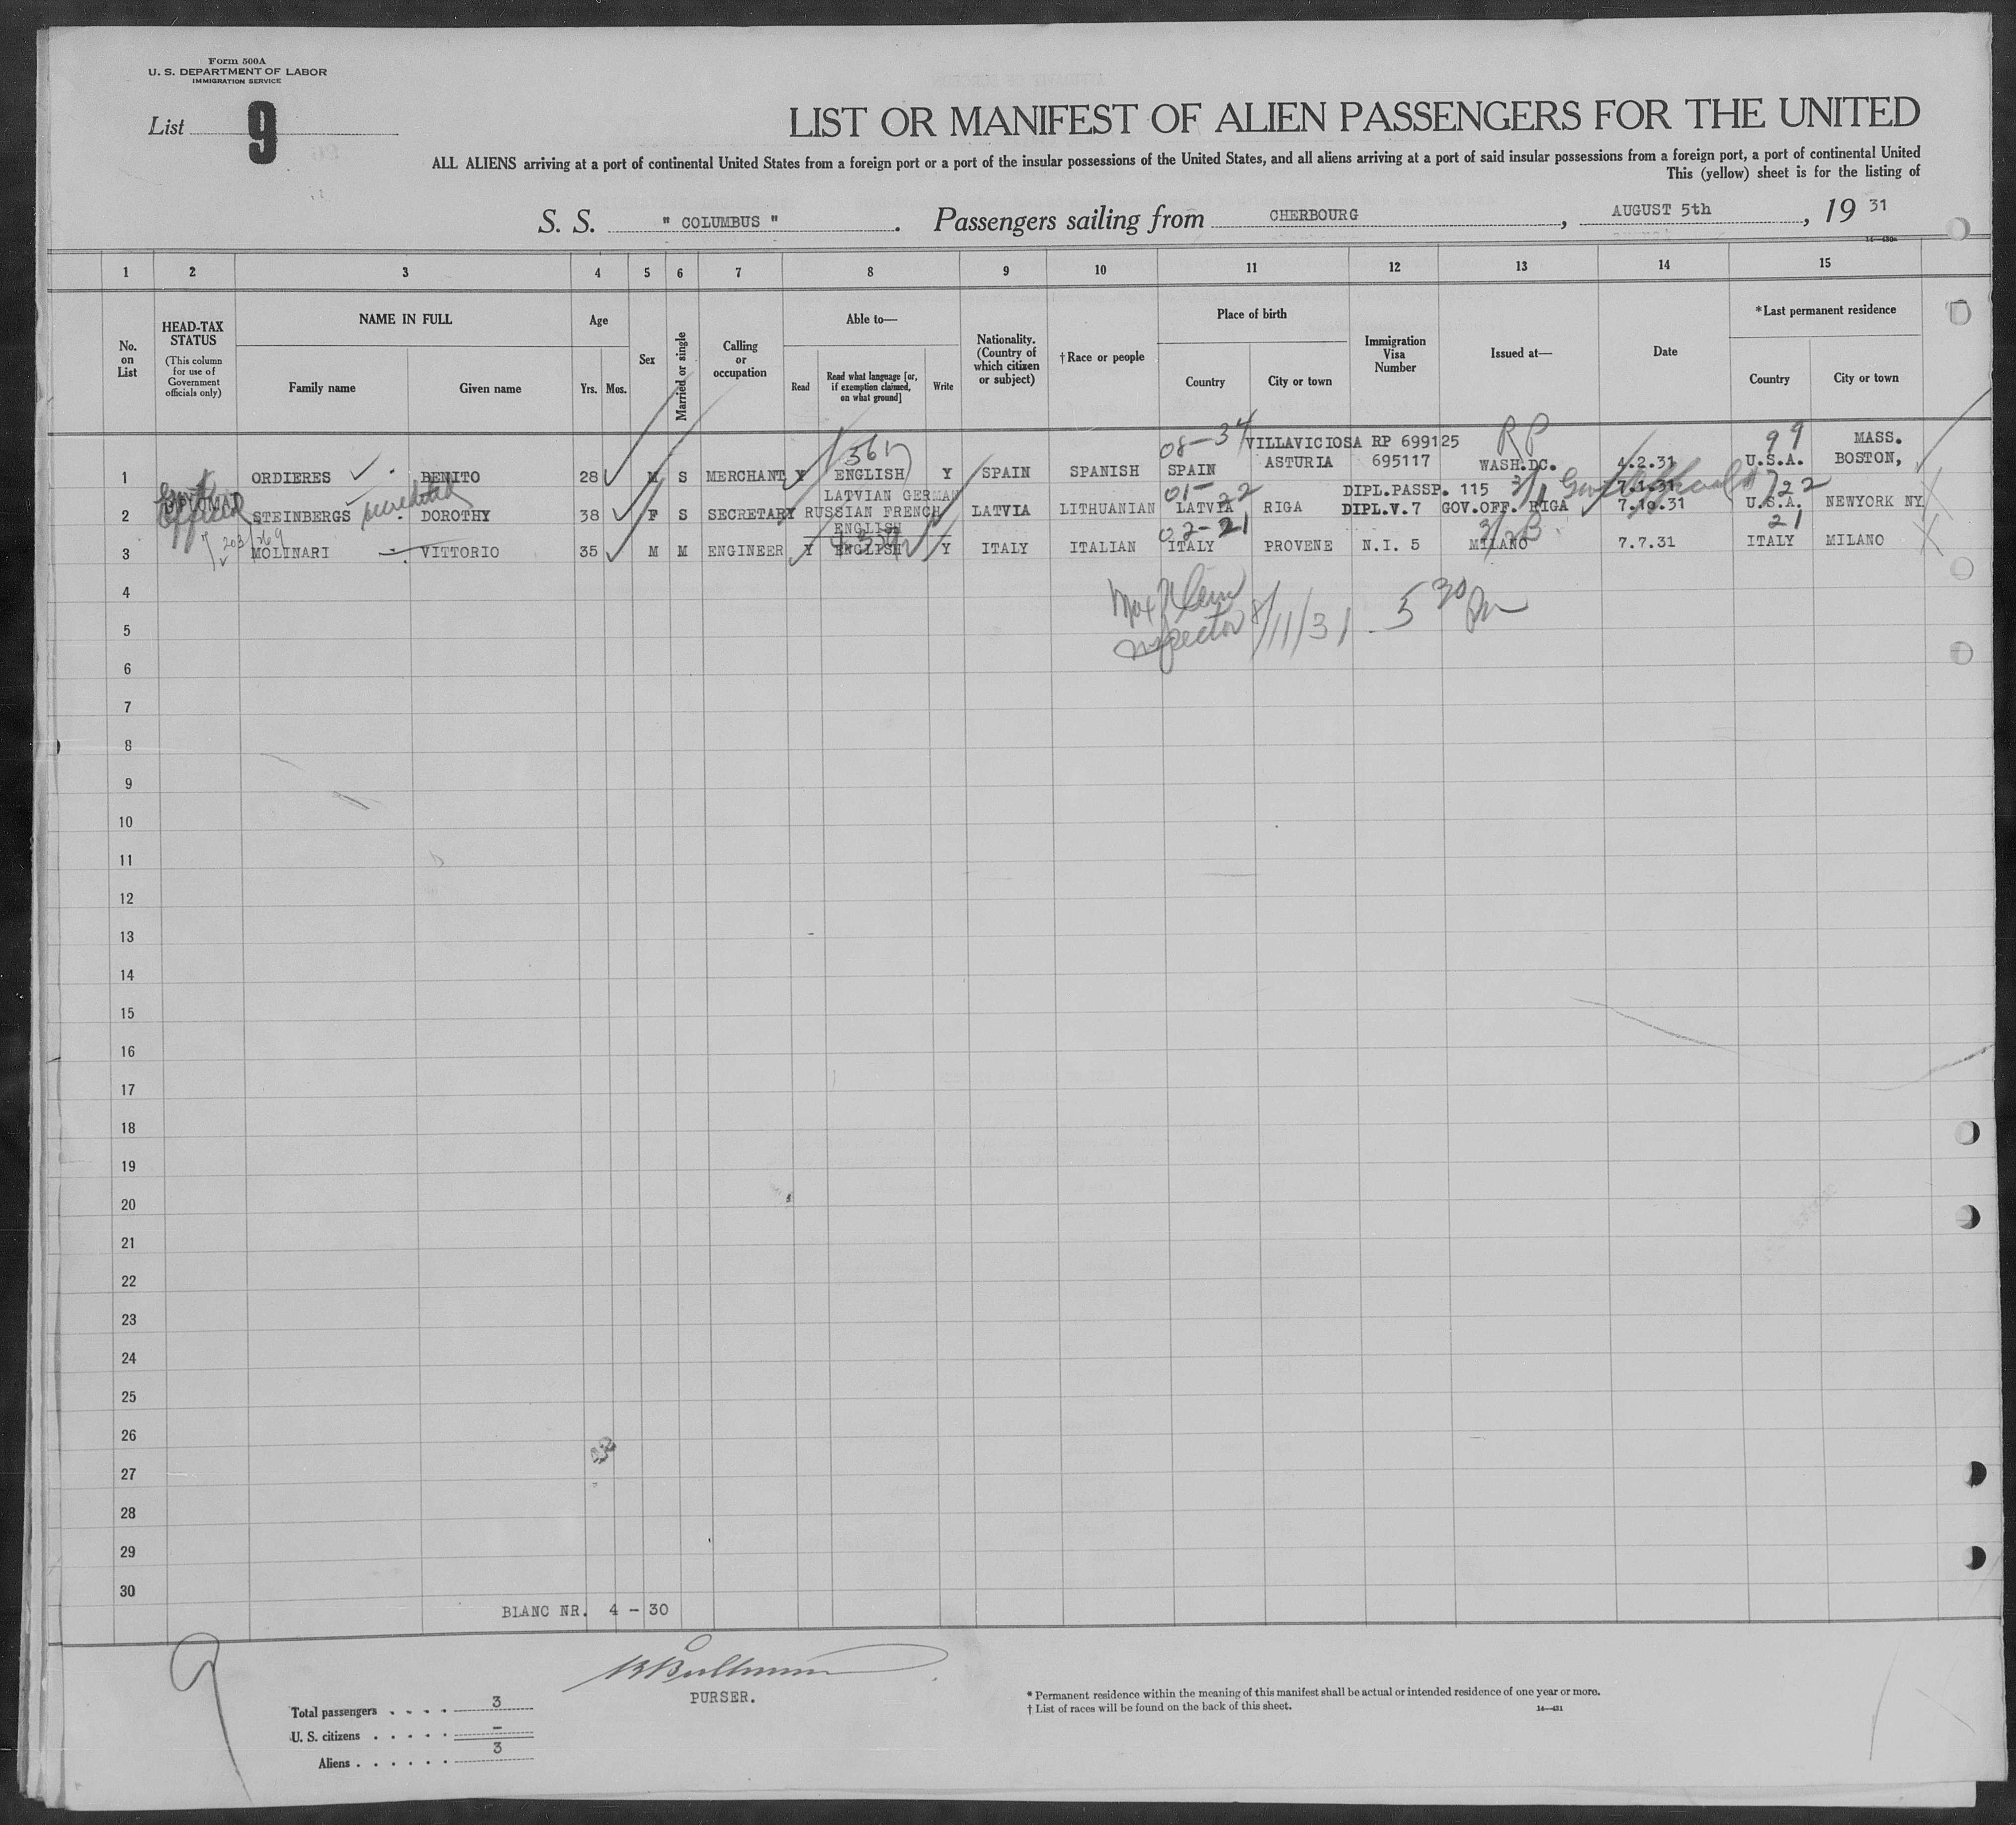 Form 500A
U. S. DEPARTMENT OF LABOR
IMMIGRATION SERVICE
List 9
LIST OR MANIFEST OF ALIEN PASSENGERS FOR THE UNITED
ALL ALIENS arriving at a port of continental United States from a foreign port or a port of the insular possessions of the United States, and all aliens arriving at a port of said insular possessions from a foreign port, a port of continental United
This (yellow) sheet is for the listing of
S. S. " COLUMBUS " . Passengers sailing from CHERBOURG , AUGUST 5th , 19 31
1 2 3 4 5 6 7 8 9 10 11 12 13 14 15
No. on List
HEAD-TAX STATUS
(This column for use of Government officials only)
NAME IN FULL
Family name
Given name
Age
Yrs. Mos.
Sex
Married or single
Calling or occupation
Able to—
Read
Read what language [or, if exemption claimed, on what ground]
Write
Nationality. (Country of which citizen or subject)
†Race or people
Place of birth
Country
City or town
Immigration Visa Number
Issued at—
Date
*Last permanent residence
Country
City or town
08-34 VILLAVICIOSA RP 699125 RP 99 MASS.
1 ORDIERES BENITO 28 M S MERCHANT Y ENGLISH Y SPAIN SPANISH SPAIN ASTURIA 695117 WASH.DC. 4.2.31 U.S.A. BOSTON,
LATVIAN GERMAN 01-22 DIPL.PASSP. 115 7.1.31 722
2 STEINBERGS DOROTHY 38 F S SECRETARY RUSSIAN FRENCH LATVIA LITHUANIAN LATVIA RIGA DIPL.V.7 GOV.OFF. RIGA 7.10.31 U.S.A. NEWYORK NY
ENGLISH 02-21 21
3 MOLINARI VITTORIO 35 M M ENGINEER Y ENGLISH Y ITALY ITALIAN ITALY PROVENE N.I. 5 MILANO 7.7.31 ITALY MILANO
4
Inspector 8/11/31 5 30 Pm
5
6
7
8
9
10
11
12
13
14
15
16
17
18
19
20
21
22
23
24
25
26
27
28
29
30
BLANC NR. 4 - 30
9
PURSER.
Total passengers . . . . 3
U. S. citizens . . . . . -
Aliens . . . . . . 3
* Permanent residence within the meaning of this manifest shall be actual or intended residence of one year or more.
† List of races will be found on the back of this sheet.
14—431